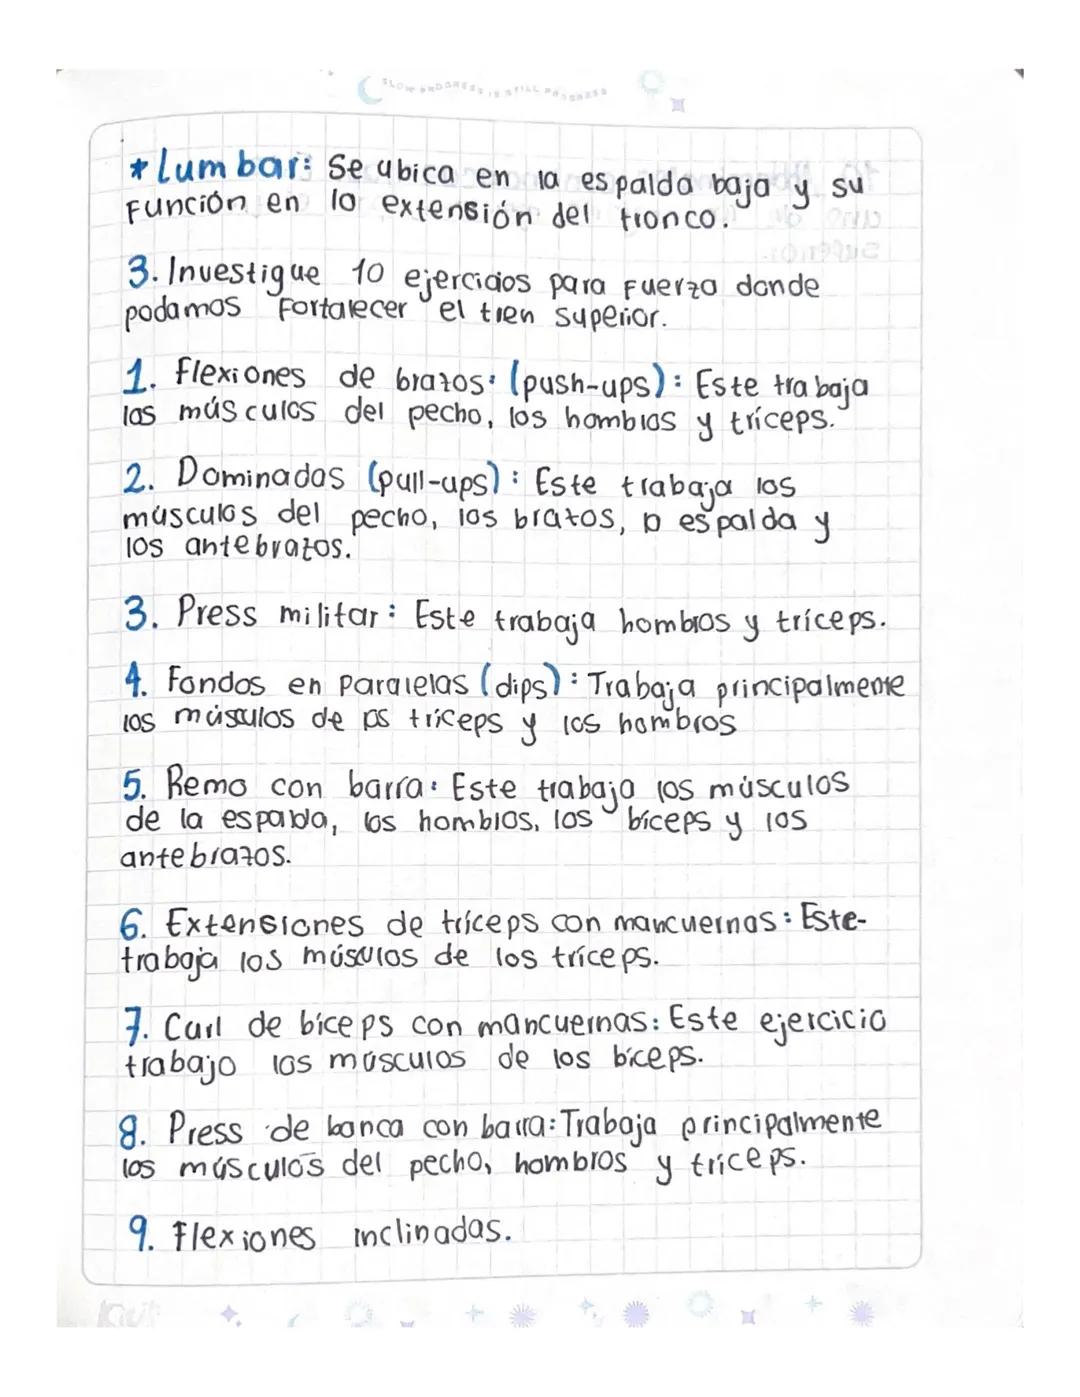 SLOW PROGRESS IS STILL PROGRESS
* Lumbar: Se ubica en la espalda baja y su
Función en la extensión del tronco.
3. Investigue 10 ejercicios para Fuerza donde
podamos Fortalecer el tren superior.
1. Flexiones de brazos: (push-ups): Este trabaja
los músculos del pecho, los hombros y tríceps.
2. Dominadas (pull-ups): Este trabaja los
músculos del pecho, los brazos, la espalda y
los antebrazos.
3. Press militar: Este trabaja hombros y tríceps.
4. Fondos en Paralelas (dips): Trabaja principalmente
los músculos de los tríceps y los hombros
5. Remo con barra: Este trabaja los músculos
de la espalda, los hombros, los bíceps y los
antebrazos.
6. Extensiones de tríceps con mancuernas: Este-
trabaja los músculos de los tríceps.
7. Curl de bíceps con mancuernas: Este ejercicio
trabajo los músculos de los bíceps.
8. Press de banca con barra: Trabaja principalmente
los músculos del pecho, hombros y tríceps.
9. Flexiones inclinadas.